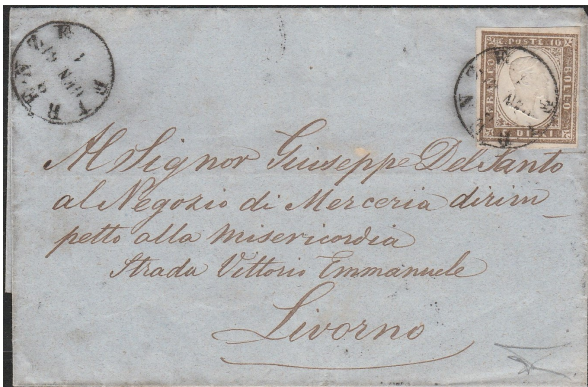 FIRENZE
FRANCO
POSTE
BOLLO
C. DIECI 10
FIRENZE
Al Signor Giuseppe Del Santo
al Negozio di Merceria dirim_
petto alla Misericordia
Strada Vittorio Emmanuele
Livorno